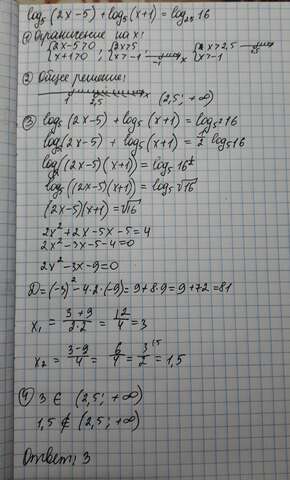 log₅(2x-5) + log₅(x+1) = log₂₅16
① Ограничение на x:
{2x-5>0 x+1>0; {2x>5 x>-1; {x>2,5 x>-1
② Общее решение:
-1 2,5 x (2,5; +∞)
③ log₅(2x-5) + log₅(x+1) = log₅²16
log₅(2x-5) + log₅(x+1) = 1/2 log₅16
log₅((2x-5)(x+1)) = log₅16^½
log₅((2x-5)(x+1)) = log₅√16
(2x-5)(x+1) = √16
2x²+2x-5x-5=4
2x²-3x-5-4=0
2x²-3x-9=0
D=(-3)²-4·2·(-9)=9+8·9=9+72=81
x₁ = (3+9)/(2·2) = 12/4 = 3
x₂ = (3-9)/4 = 6/4 = 3/2 = 1,5
④ 3 ∈ (2,5; +∞)
1,5 ∉ (2,5; +∞)
Ответ: 3